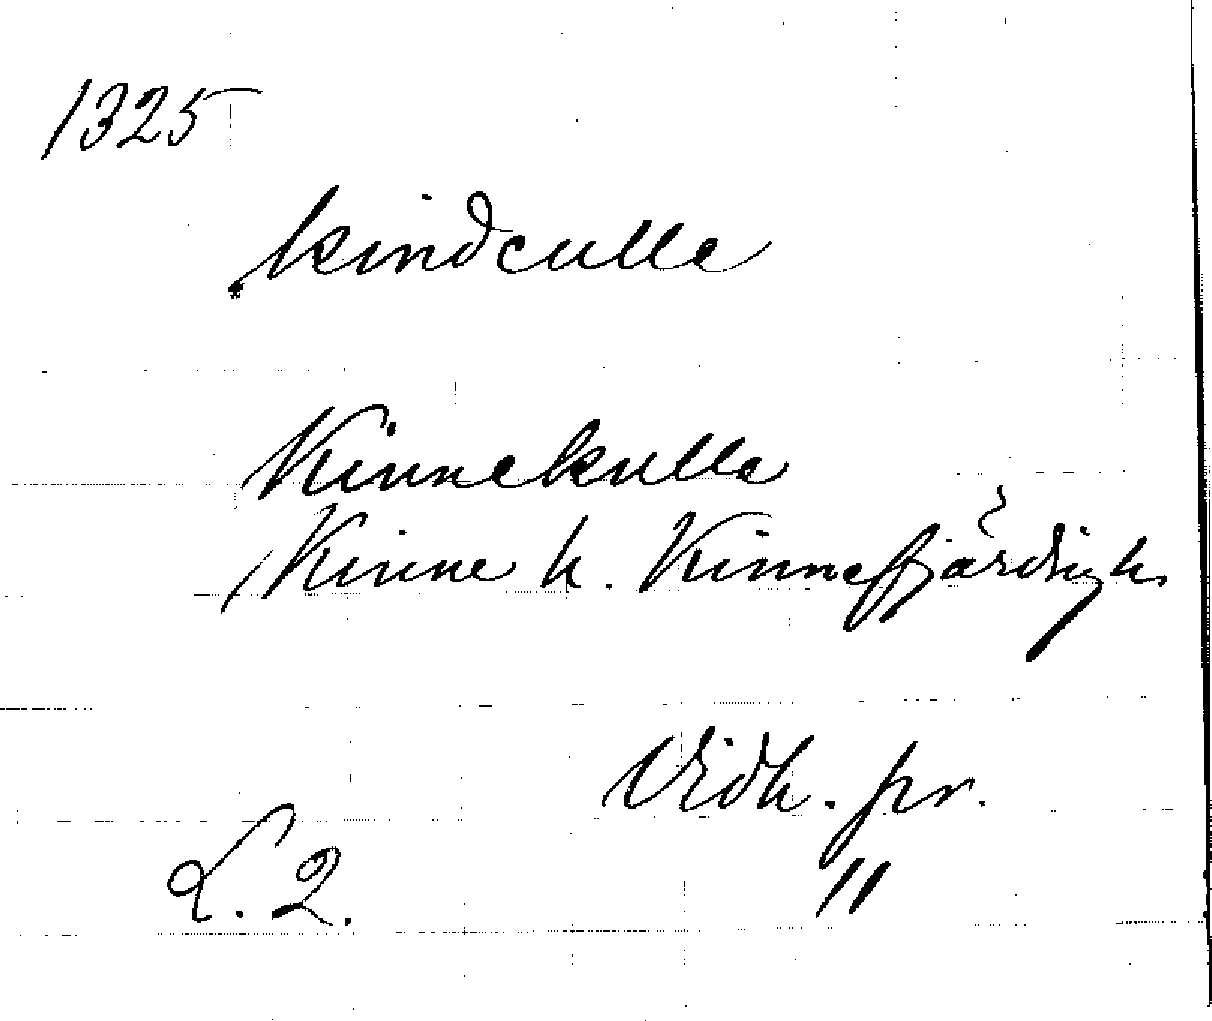 1325
kindculle
Kinnekulle
Kinne h. Kinnefjärdigh.
Vidh. pr.
L. 2. 11